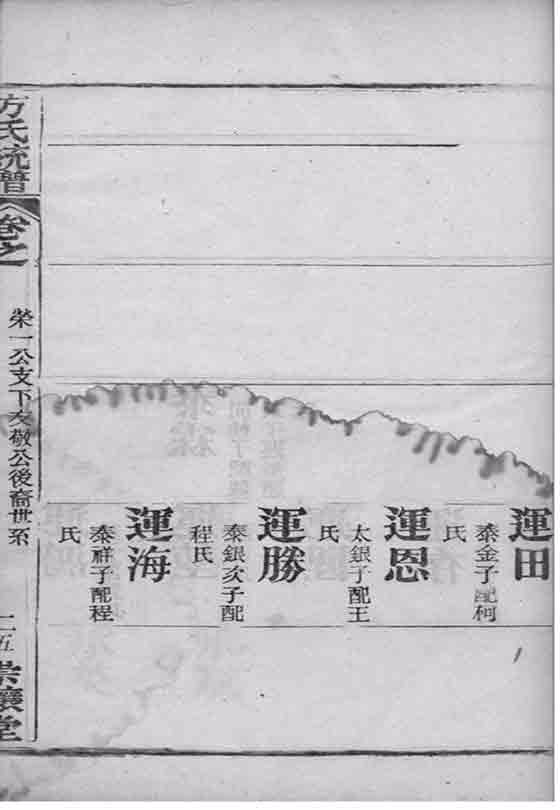 運田
泰金子配柯
氏
運恩
太銀子配王
氏
運勝
泰銀次子配
程氏
運海
泰祥子配程
氏
方氏統譜
卷之
榮一公支下友敬公後裔世系
二五
堂